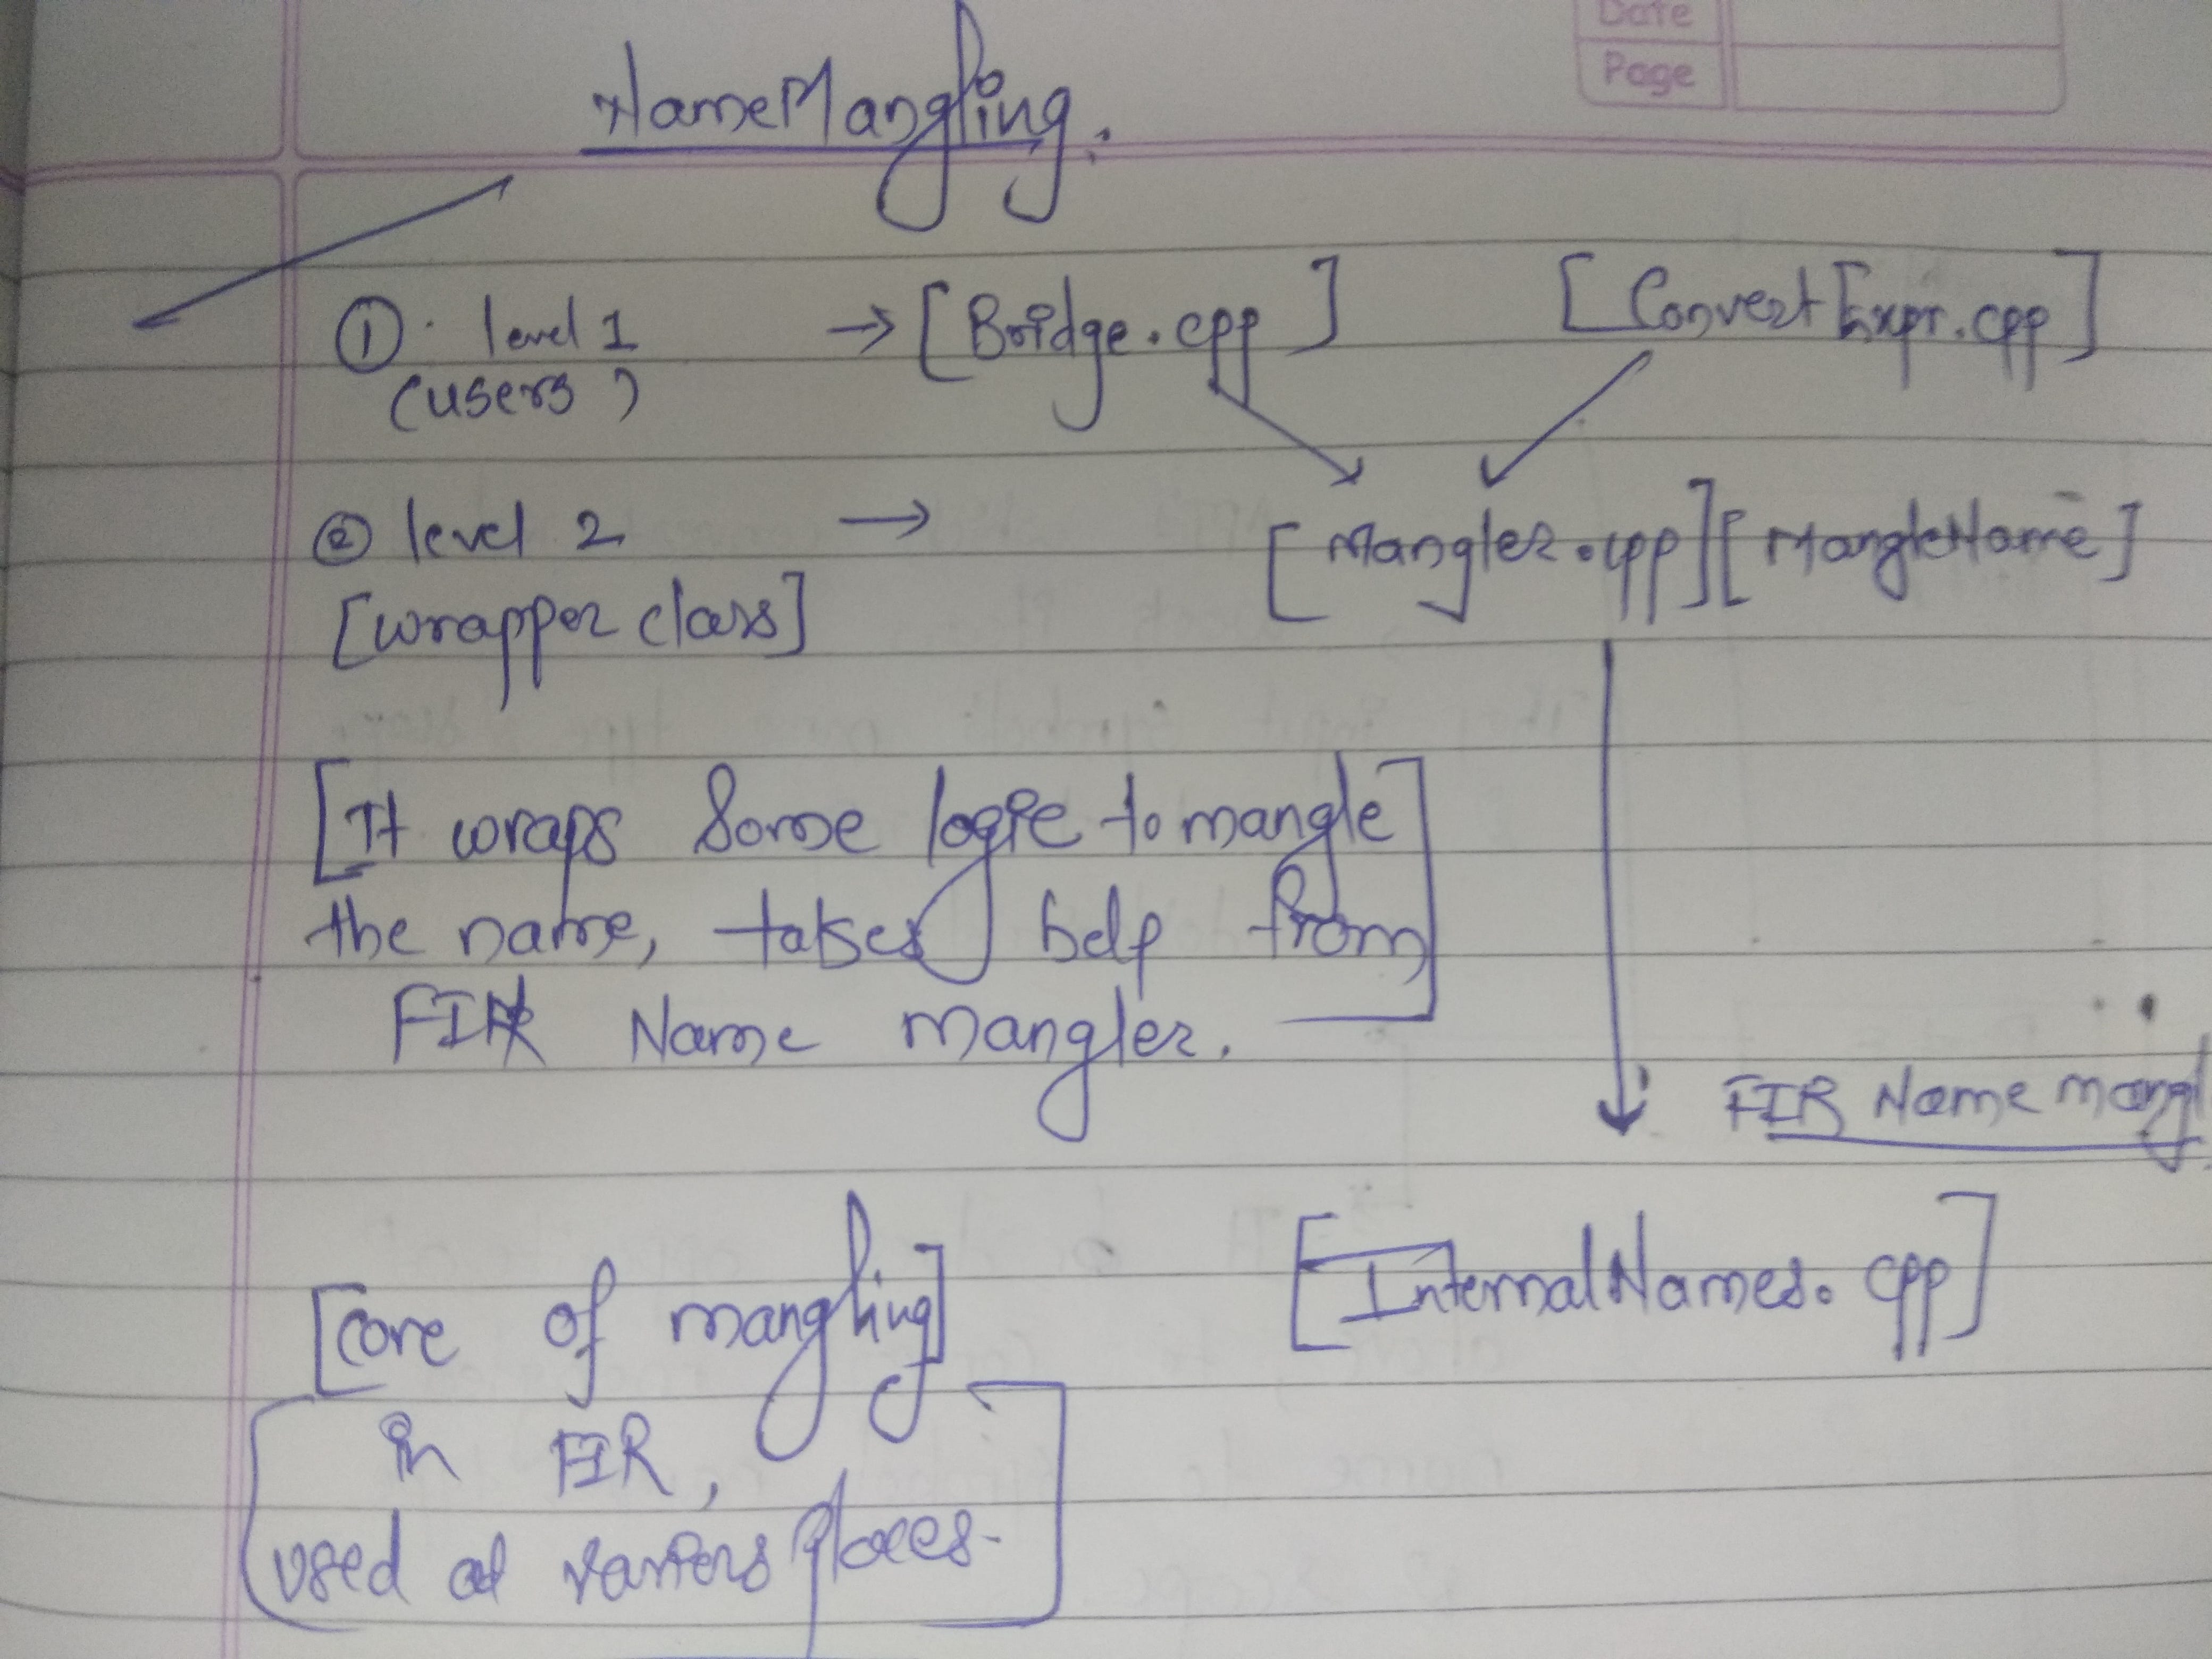 Date
Page
NameMangling.
① level 1 → [Bridge.cpp] [ConvertExpr.cpp]
(users)
② level 2 → [Mangler.cpp][MangleName]
[wrapper class]
[It wraps Some logic to mangle
the name, takes help from
FIR Name mangler.]
FIR Name mangl
[core of mangling] [InternalNames.cpp]
in FIR,
used at various places.